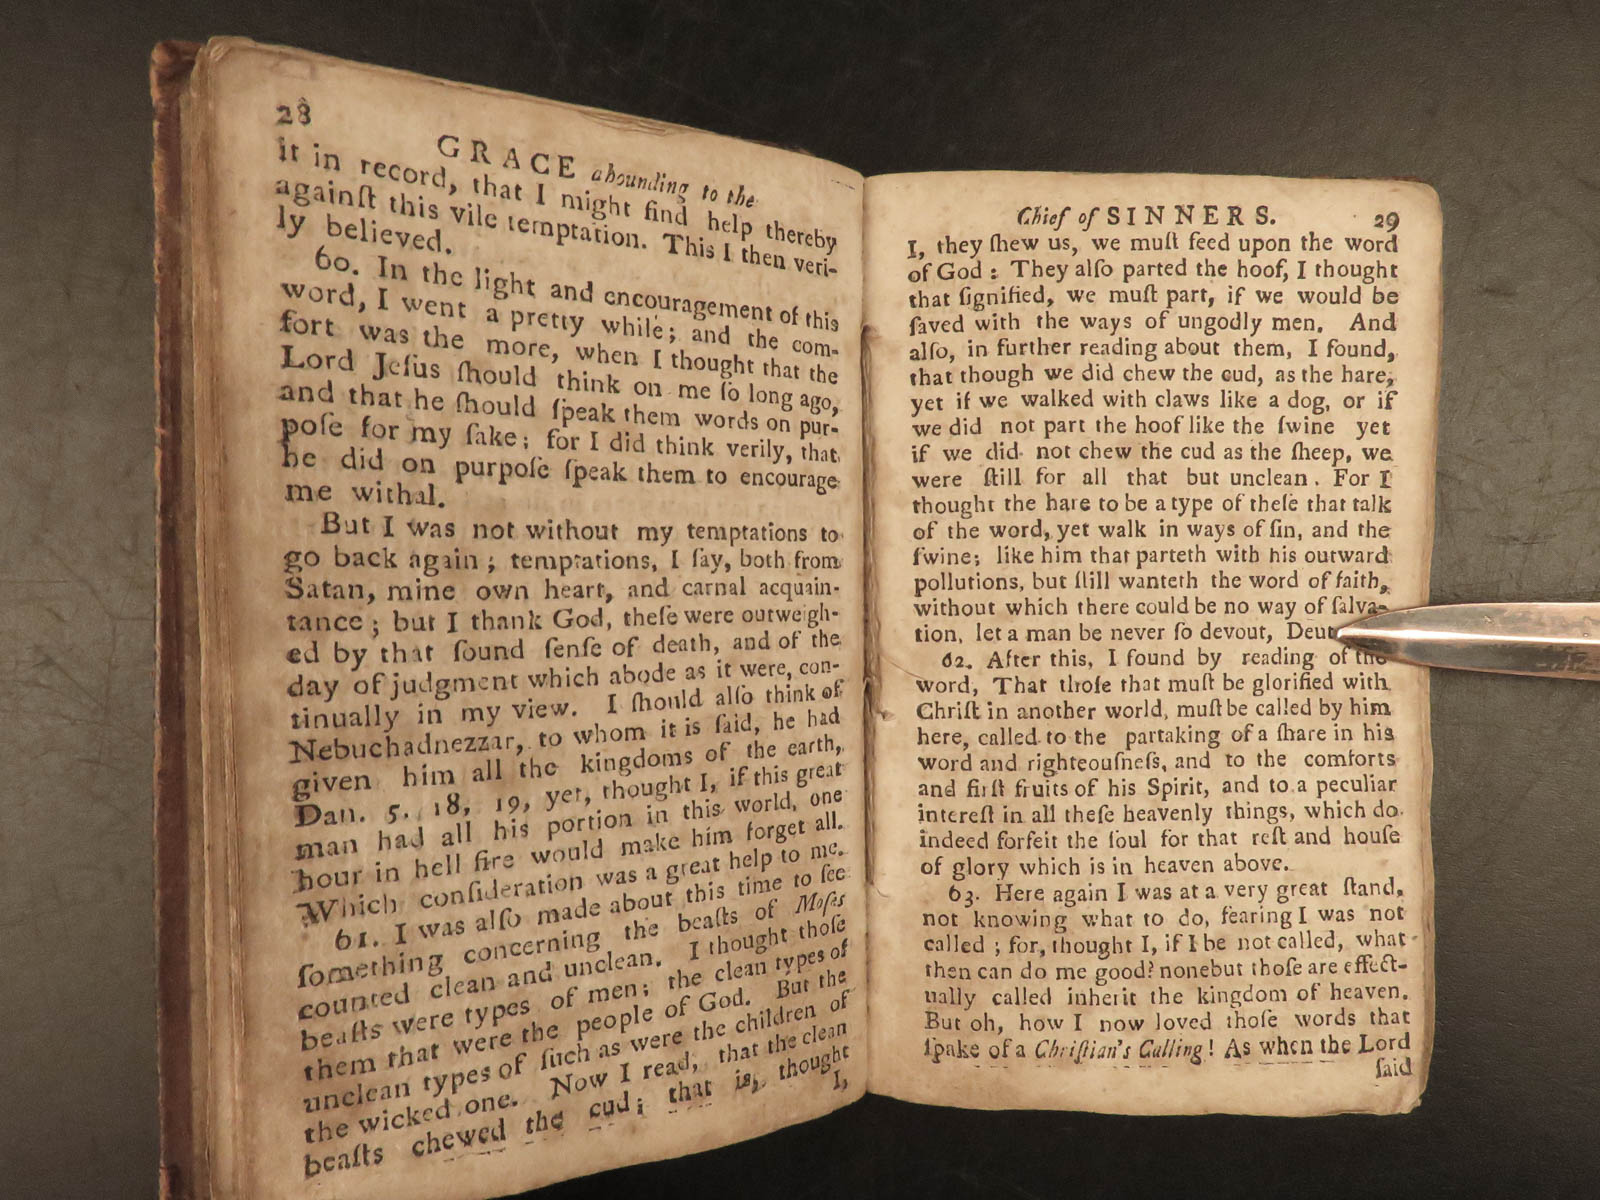 28
GRACE abounding to the
it in record, that I might find help thereby
againſt this vile temptation. This I then veri-
ly believed.
60. In the light and encouragement of this
word, I went a pretty while; and the com-
fort was the more, when I thought that the
Lord Jeſus ſhould think on me ſo long ago,
and that he ſhould ſpeak them words on pur-
poſe for my ſake; for I did think verily, that
he did on purpoſe ſpeak them to encourage
me withal.
But I was not without my temptations to
go back again; temptations, I ſay, both from
Satan, mine own heart, and carnal acquain-
tance; but I thank God, theſe were outweigh-
ed by that ſound ſenſe of death, and of the
day of judgment which abode as it were, con-
tinually in my view. I ſhould alſo think of
Nebuchadnezzar, to whom it is ſaid, he had
given him all the kingdoms of the earth,
Dan. 5. 18, 19, yet, thought I, if this great
man had all his portion in this world, one
hour in hell fire would make him forget all.
Which conſideration was a great help to me.
61. I was alſo made about this time to ſee
ſomething concerning the beaſts of Moſes
counted clean and unclean. I thought thoſe
beaſts were types of men; the clean types of
them that were the people of God. But the
unclean types of ſuch as were the children of
the wicked one. Now I read, that the clean
beaſts chewed the cud; that is, thought
I,
Chief of SINNERS. 29
I, they ſhew us, we muſt feed upon the word
of God: They alſo parted the hoof, I thought
that ſignified, we muſt part, if we would be
ſaved with the ways of ungodly men. And
alſo, in further reading about them, I found,
that though we did chew the cud, as the hare,
yet if we walked with claws like a dog, or if
we did not part the hoof like the ſwine yet
if we did not chew the cud as the ſheep, we
were ſtill for all that but unclean. For I
thought the hare to be a type of theſe that talk
of the word, yet walk in ways of ſin, and the
ſwine; like him that parteth with his outward
pollutions, but ſtill wanteth the word of faith,
without which there could be no way of ſalva-
tion, let a man be never ſo devout, Deut
62. After this, I found by reading of the
word, That thoſe that muſt be glorified with
Chriſt in another world, muſt be called by him
here, called to the partaking of a ſhare in his
word and righteouſneſs, and to the comforts
and firſt fruits of his Spirit, and to a peculiar
intereſt in all theſe heavenly things, which do
indeed forfeit the ſoul for that reſt and houſe
of glory which is in heaven above.
63. Here again I was at a very great ſtand,
not knowing what to do, fearing I was not
called; for, thought I, if I be not called, what
then can do me good? nonebut thoſe are effect-
ually called inherit the kingdom of heaven.
But oh, how I now loved thoſe words that
ſpake of a Chriſtian's Calling! As when the Lord
ſaid